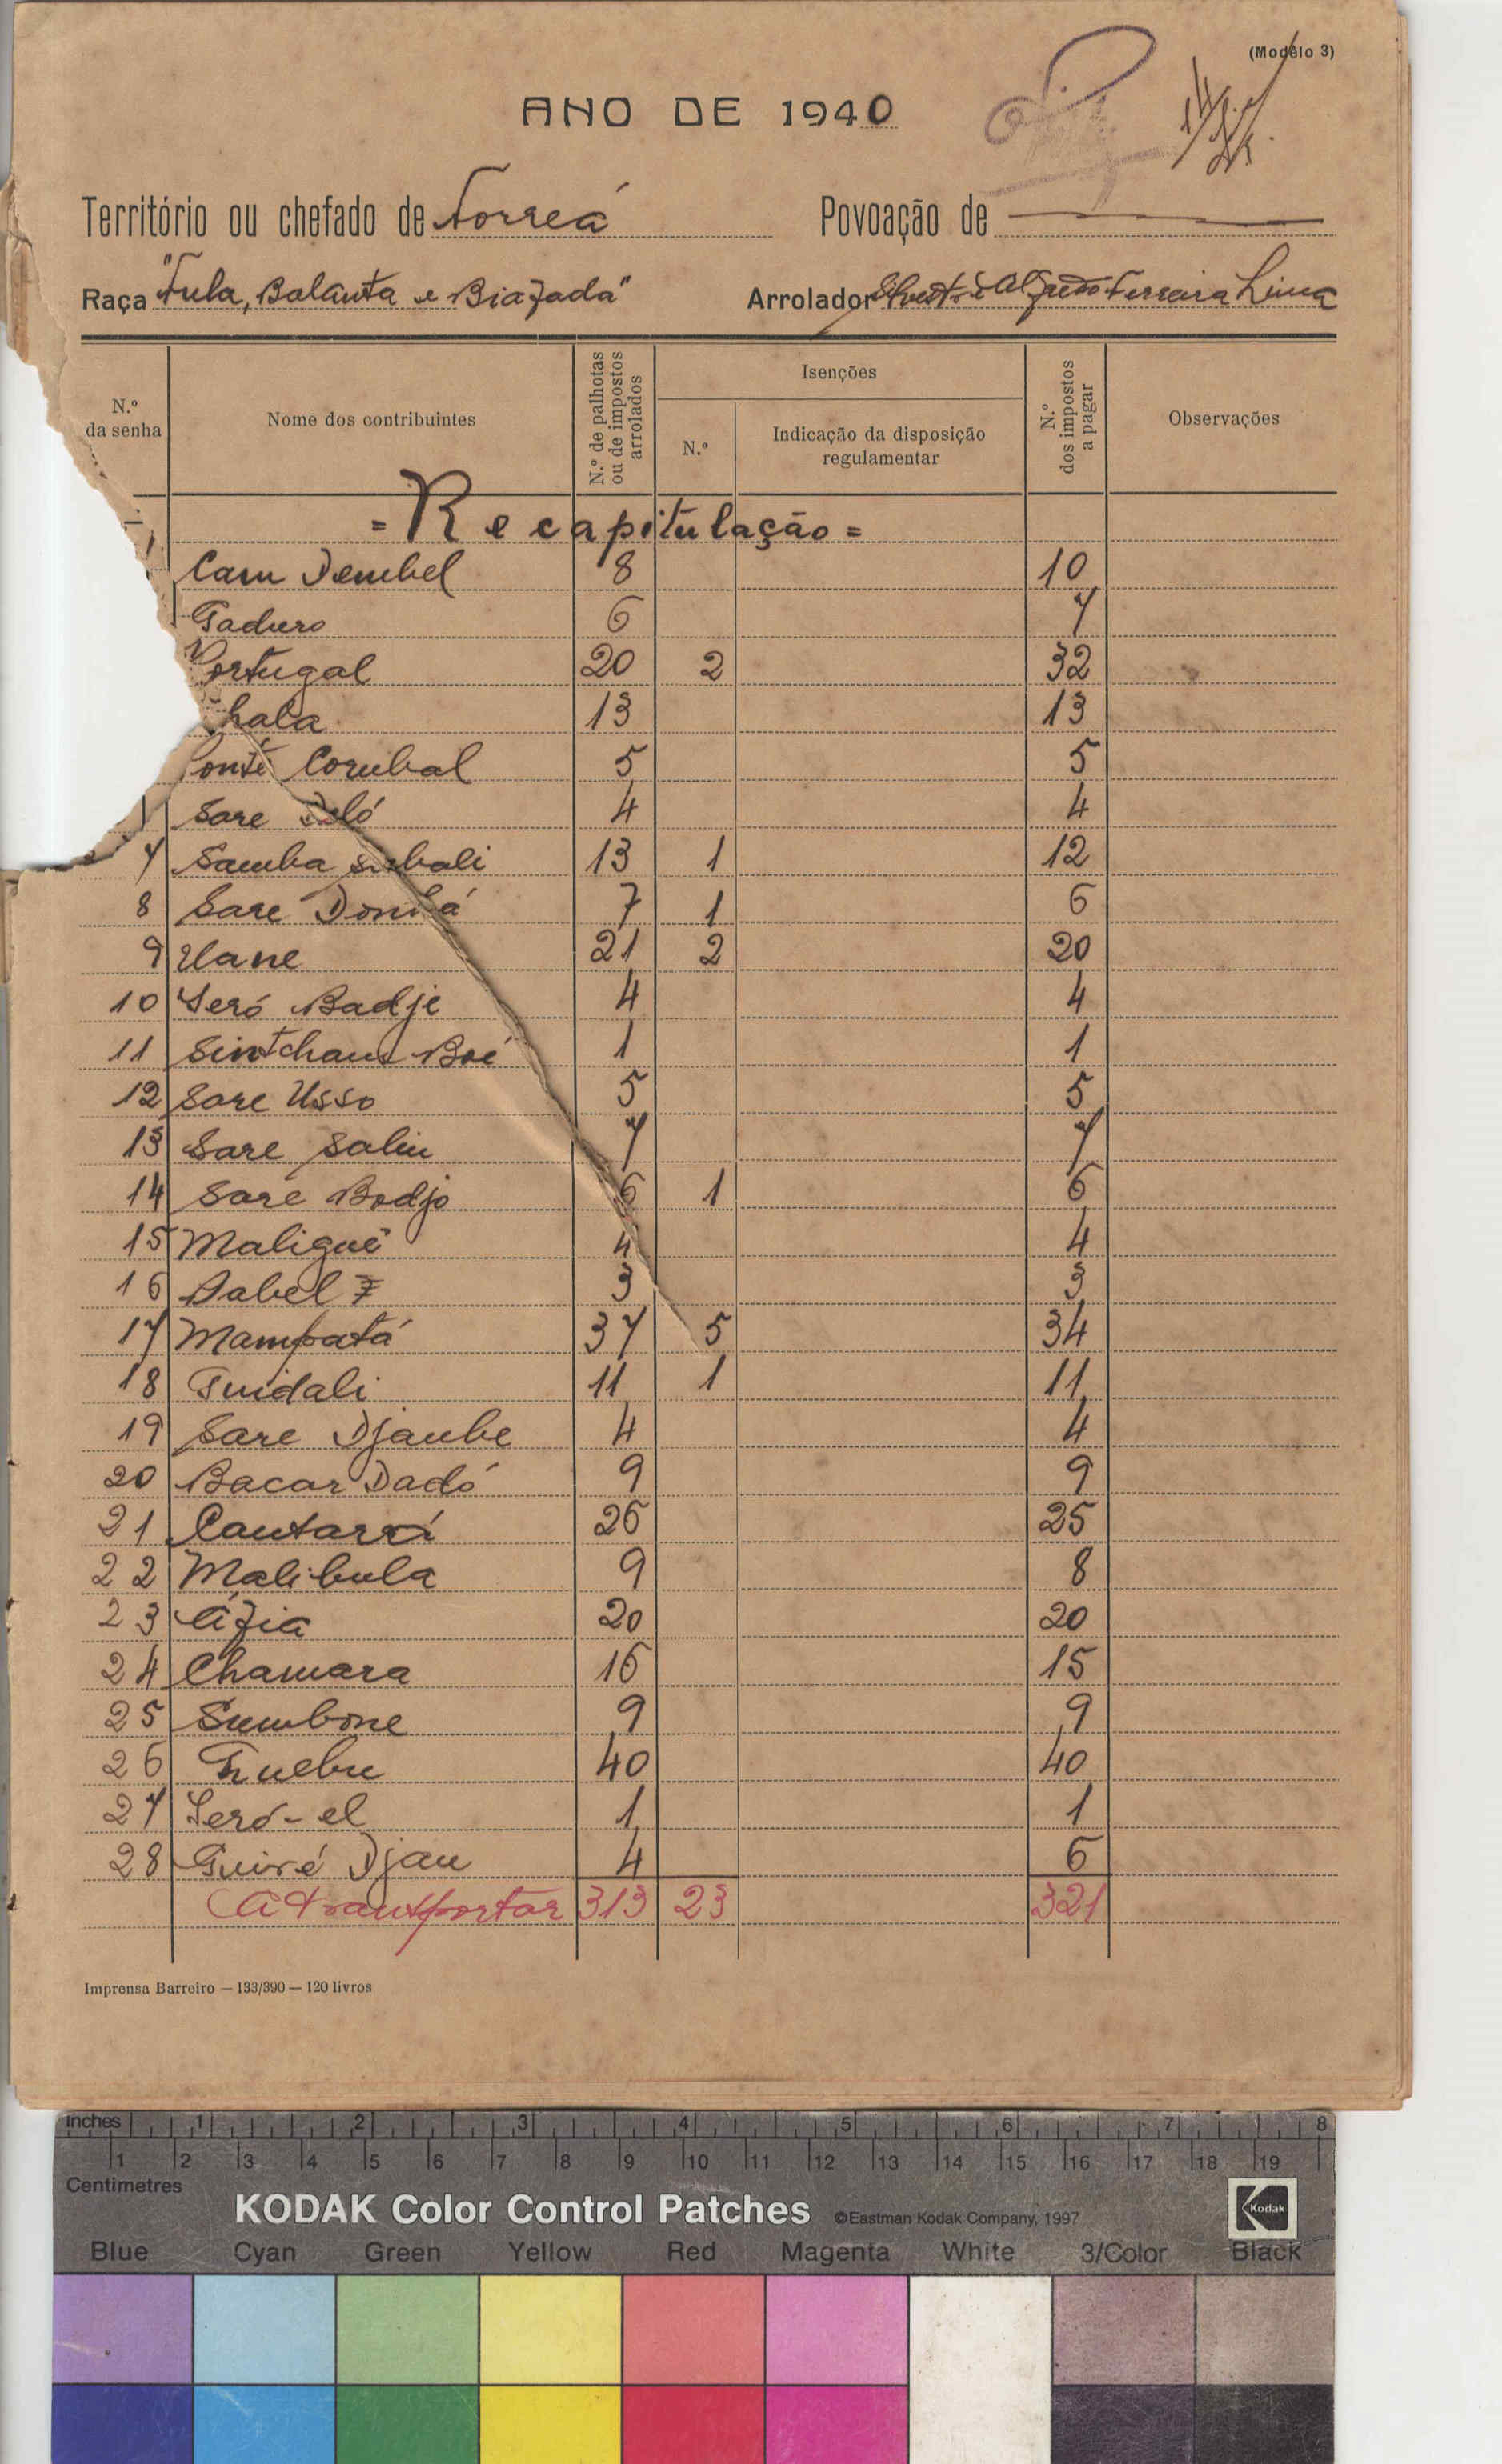 (Modêlo 3)
ANO DE 1940
Território ou chefado de Correá Povoação de
Raça "Fula, Balanta e Biafada" Arrolador Alfredo Ferreira Lima
N.º da senha
Nome dos contribuintes
N.º de palhotas ou de impostos arrolados
Isenções
N.º
Indicação da disposição regulamentar
N.º dos impostos a pagar
Observações
= Recapitulação =
Cam Dembel 8 10
Paduro 6 7
Portugal 20 2 32
hala 13 13
Ponte Corubal 5 5
Sare 4 4
7 Samba 13 1 12
8 Sare 7 1 6
9 Uane 21 2 20
10 Seró Badje 4 4
11 Sintcham Boé 1 1
12 Sare Usso 5 5
13 Sare Saliu 7 7
14 Sare Bodjo 6 1 6
15 Maliguê 4 4
16 Dabel 3 3
17 Mampatá 37 5 34
18 Guidali 11 1 11
19 Sare Djaube 4 4
20 Bacar Dadó 9 9
21 26 25
22 Malibula 9 8
23 Afia 20 20
24 Chamara 16 15
25 Sumbone 9 9
26 40 40
27 Seró-el 1 1
28 Guiré Djau 4 6
A transportar 313 23 321
Imprensa Barreiro — 133/390 — 120 livros
Inches 1 2 3 4 5 6 7 8
1 2 3 4 5 6 7 8 9 10 11 12 13 14 15 16 17 18 19
Centimetres
KODAK Color Control Patches ©Eastman Kodak Company, 1997 Kodak
Blue Cyan Green Yellow Red Magenta White 3/Color Black